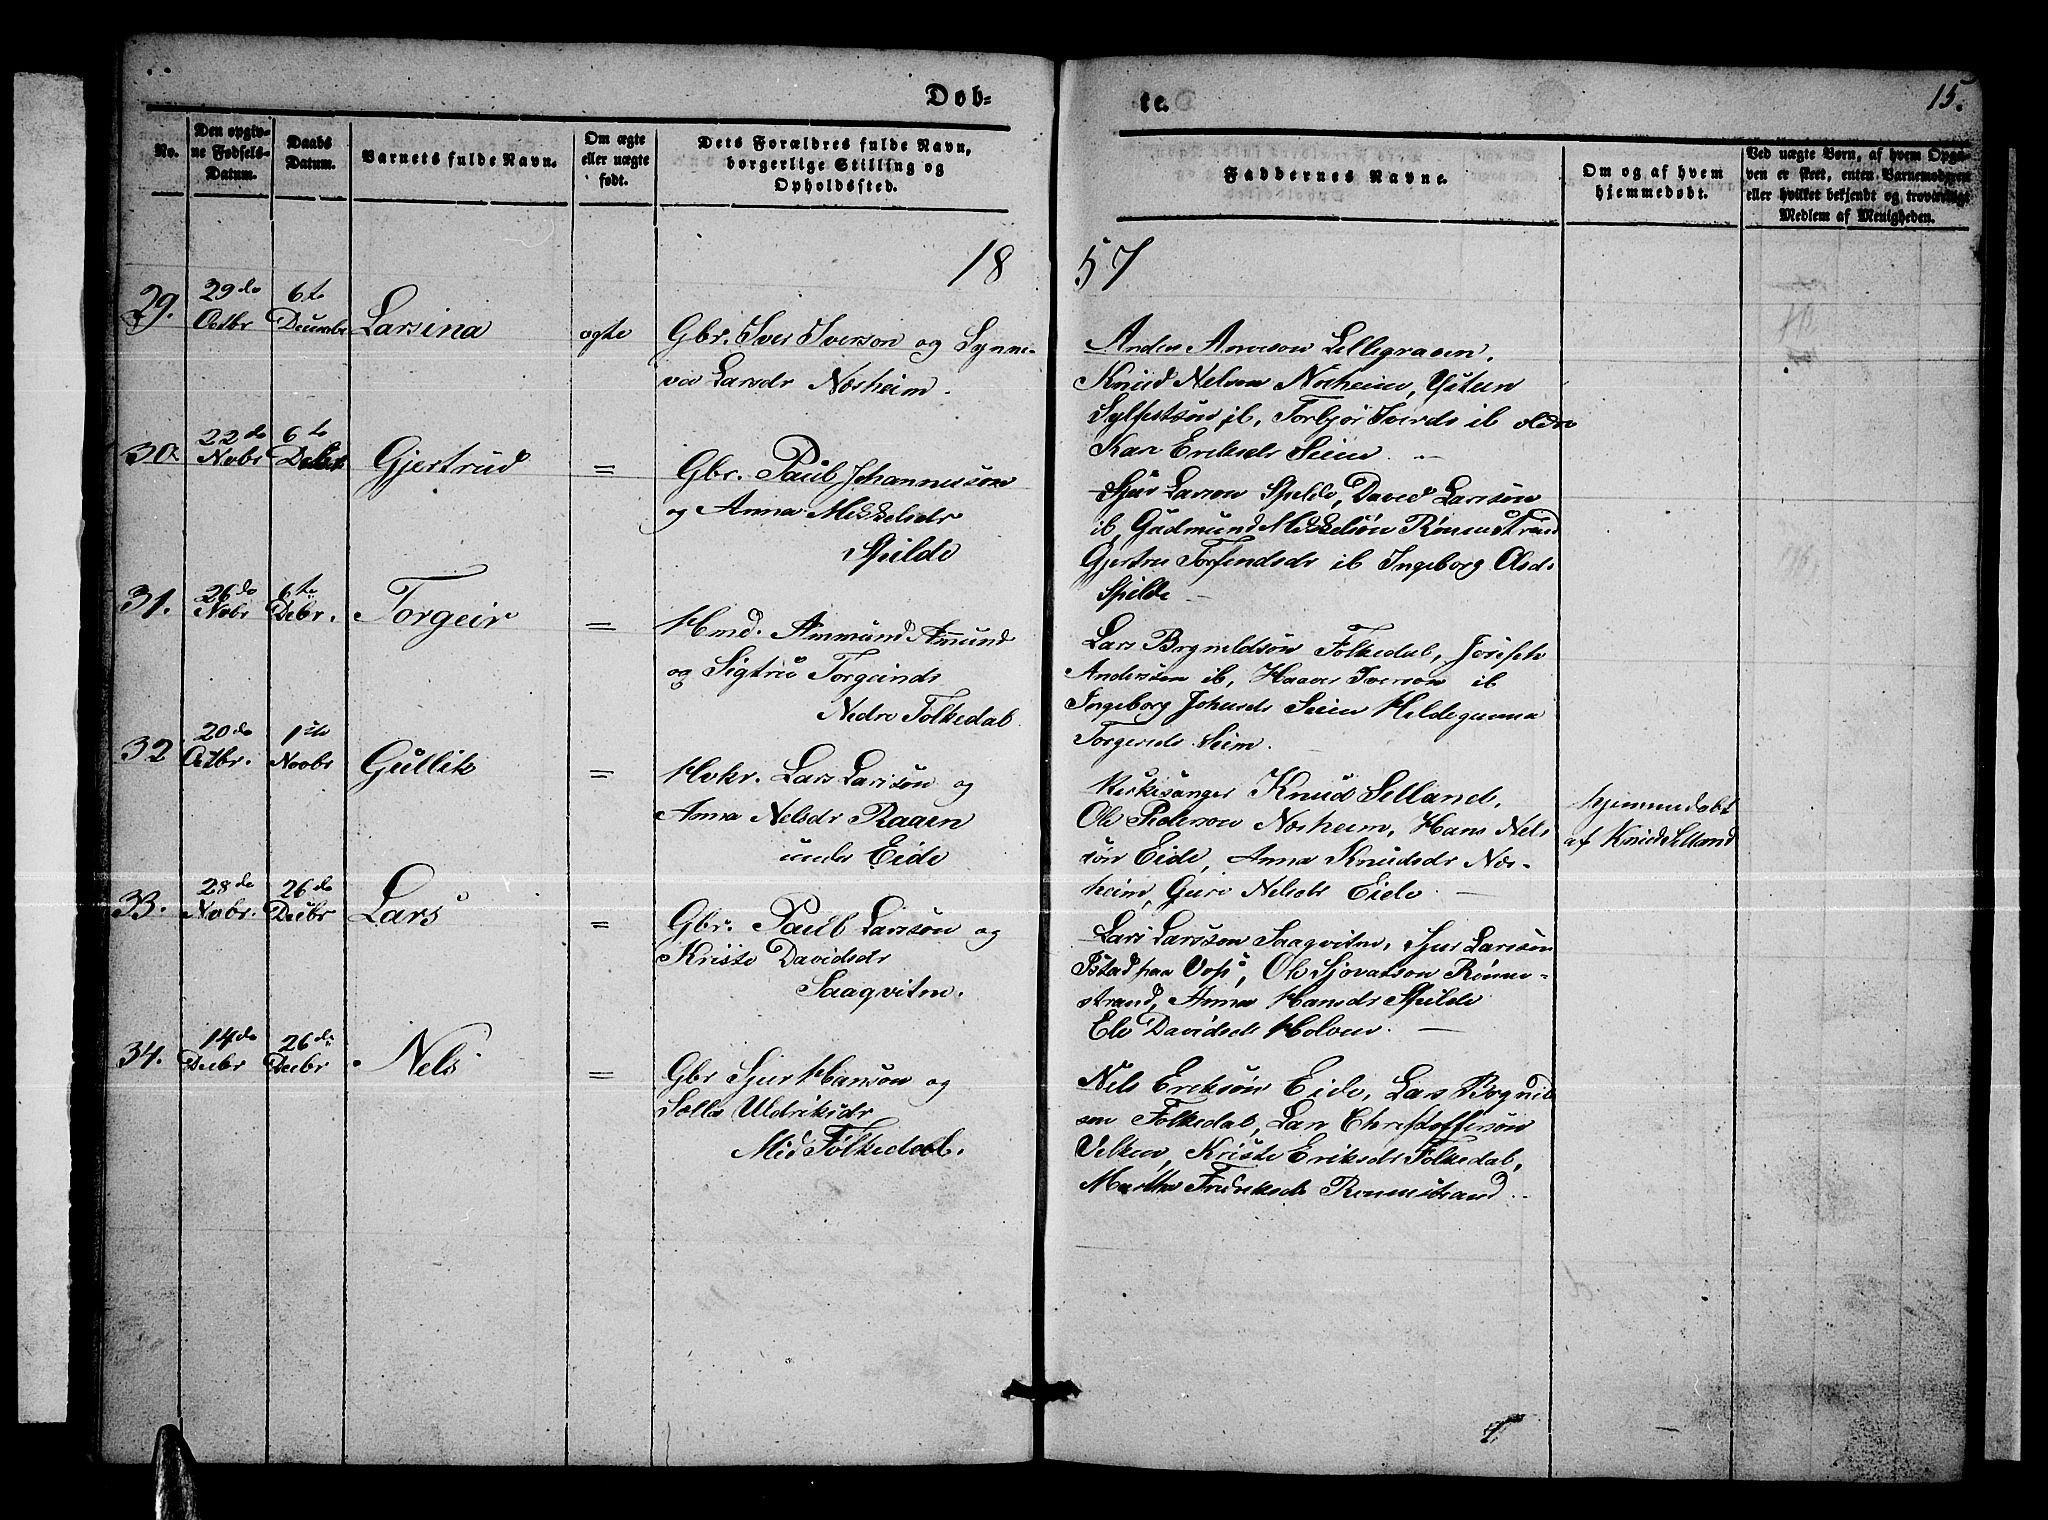 Døb=
te.
15.
No.
Den opgiv-
ne Fødsels-
Datum.
Daabs
Datum.
Barnets fulde Navn.
Om ægte
eller uægte
født.
Dets Forældres fulde Navn,
borgerlige Stilling og
Opholdssted.
Faddernes Navne.
Om og af hvem
hjemmedøbt.
Ved uægte Børn, af hvem Opga-
ven er skeet, enten Barnemoderen
eller hvilket bekjendt og troværdigt
Medlem af Menigheden.
18
57
29.
29de
Octbr
6te
Decembr
Larsina
ægte
Gbr. Iver Iverson og Synne-
va Larsdr Nosheim.
Anders Anderson Lellegraven,
Knud Nelson Nosheim, Østen
Sylfestsøn ib, Torbjør Iversd ib
Kari Eriksdr Seim.
30.
22de
Nobr
6te
Debr
Gjertrud
=
Gbr. Paul Johannessøn
og Anna Mikkelsdr
Spilde
Sjur Larson Spilde, David Larssøn
ib, Gudmund Mikkelsøn Rønnestrand
Gjertru Torfendsdr ib Ingeborg Olsd.
Spilde
31.
26de
Nobr
6te
Debr.
Torgeir
=
Hmd. Ammund Amund
og Sigtru Torgeirsds
Nedre Folkedal
Lars Brynildsøn Folkedal, Joseph
Andersøn ib, Haaver Iverson ib
Ingeborg Johnsds Seim Hildegunna
Torgersds Seim.
32
20de
Octbr.
1ste
Novbr
Gullik
=
Hvkr. Lars Larssøn og
Anna Nelsdr Raaen
under Eide
Kirkesanger Knud Selland,
Ole Pederson Nosheim, Hans Nels
søn Eide, Anna Knudsdr Nos-
heim, Guro Nelsdr Eide.
Hjemmedøbt
af Knud Selland
33.
28de
Nobr.
26de
Decbr
Lars
=
Gbr. Paul Larssøn og
Kristi Davidsdr
Saaqvitne.
Lars Larssøn Saaqvitne, Sjur Larssøn
Istad paa Voss, Ole Sjovatson Rønne-
strand, Anna Hansdr Spilde
Eli Davidsdr Holven.
34.
14de
Decbr
26de
Decbr
Nels
=
Gbr Sjur Hansøn og
Sella Uldriksdr
Mid Folkedal.
Nels Eriksøn Eide, Lars Brynild
søn Folkedal, Lars Christoffersøn
Velken, Kristi Eriksdr Folkedal,
Martha Fredriksds Rønnestrand.